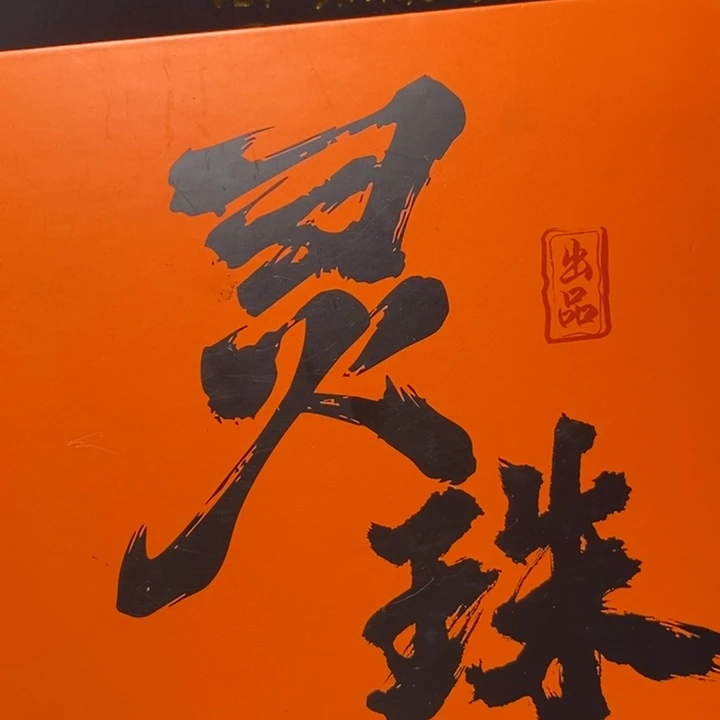 灵珠
出品